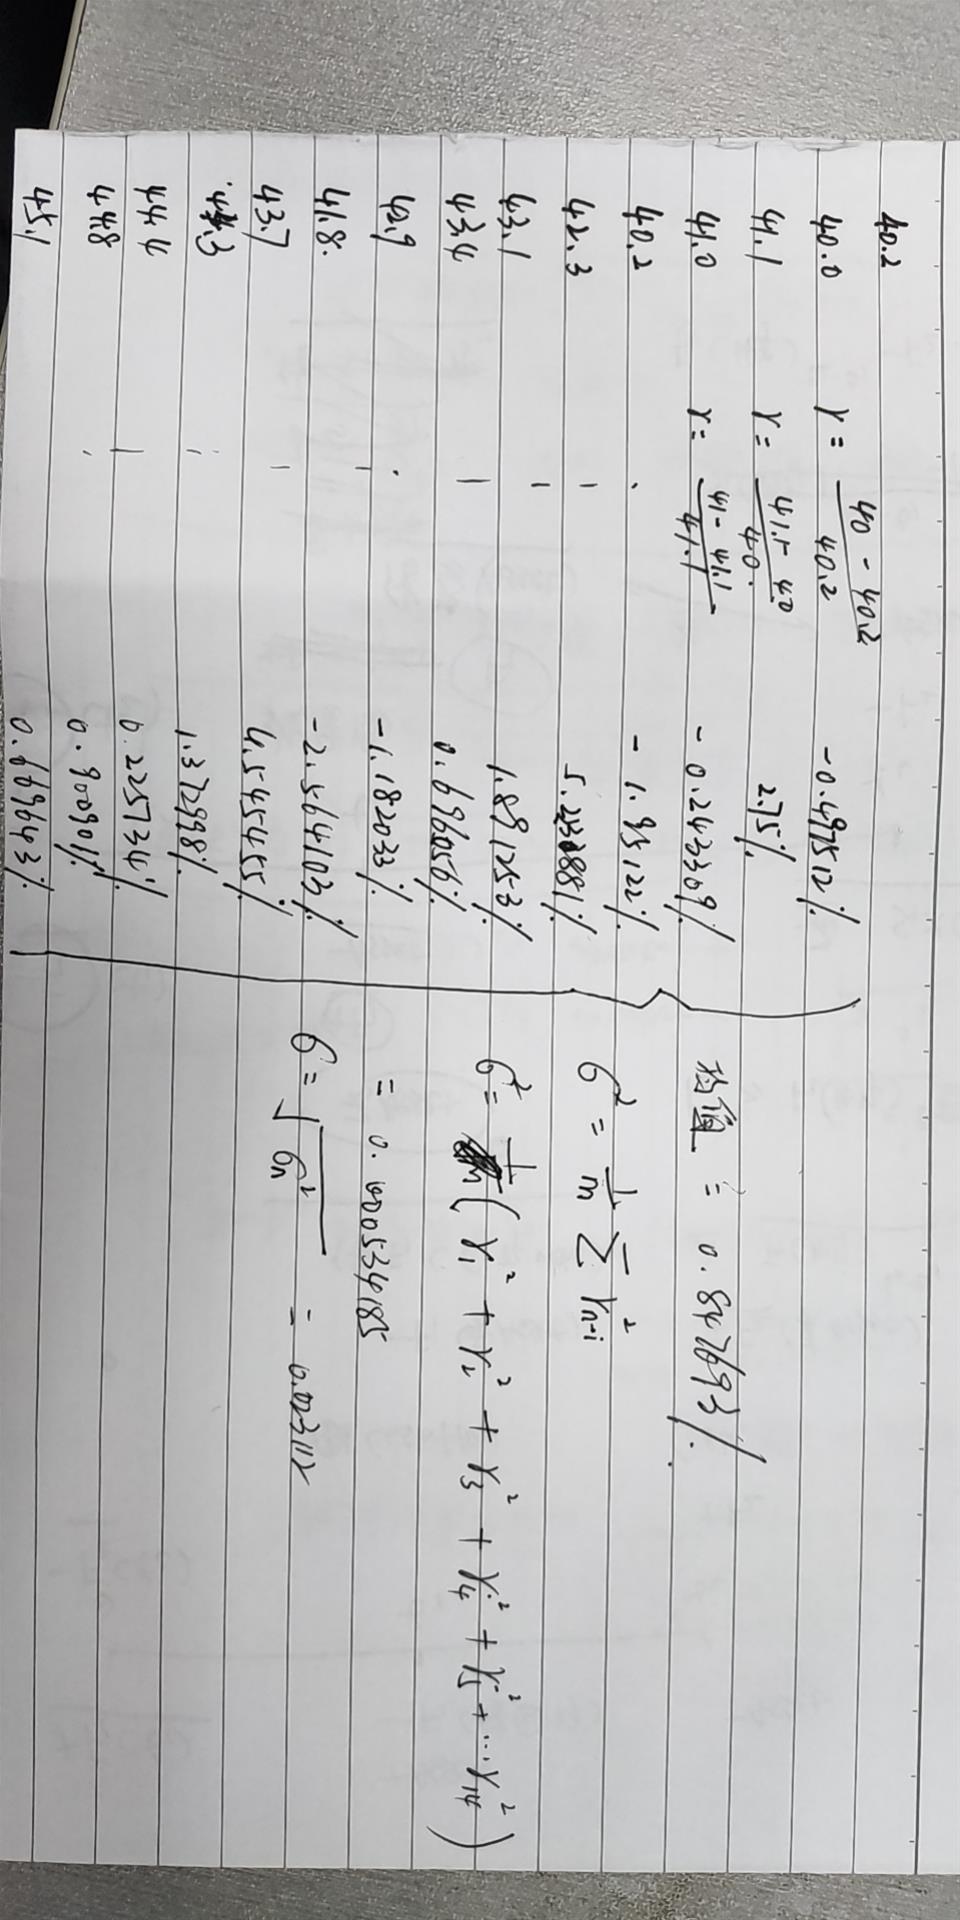 40.2
40.0 r = (40 - 40.2)/40.2 -0.497512%
41.1 r = (41.1 - 40)/40. 2.75%
41.0 r = (41 - 41.1)/41.1 -0.243309%
40.2 -1.95122%
42.3 5.223881%
43.1 1.891253%
43.4 0.696056%
42.9 -1.152033%
41.8. -2.564103%
43.7 4.545455%
44.3 1.372998%
44.4 0.225734%
44.8 0.900901%
45.1 0.669643%
均值 = 0.847693%.
σ² = 1/m Σ r²n-i
σ² = 1/ ( r₁² + r₂² + r₃² + r₄² + r₅² + ... r₁₄² )
= 0.000534185
σ = √σn² = 0.023112